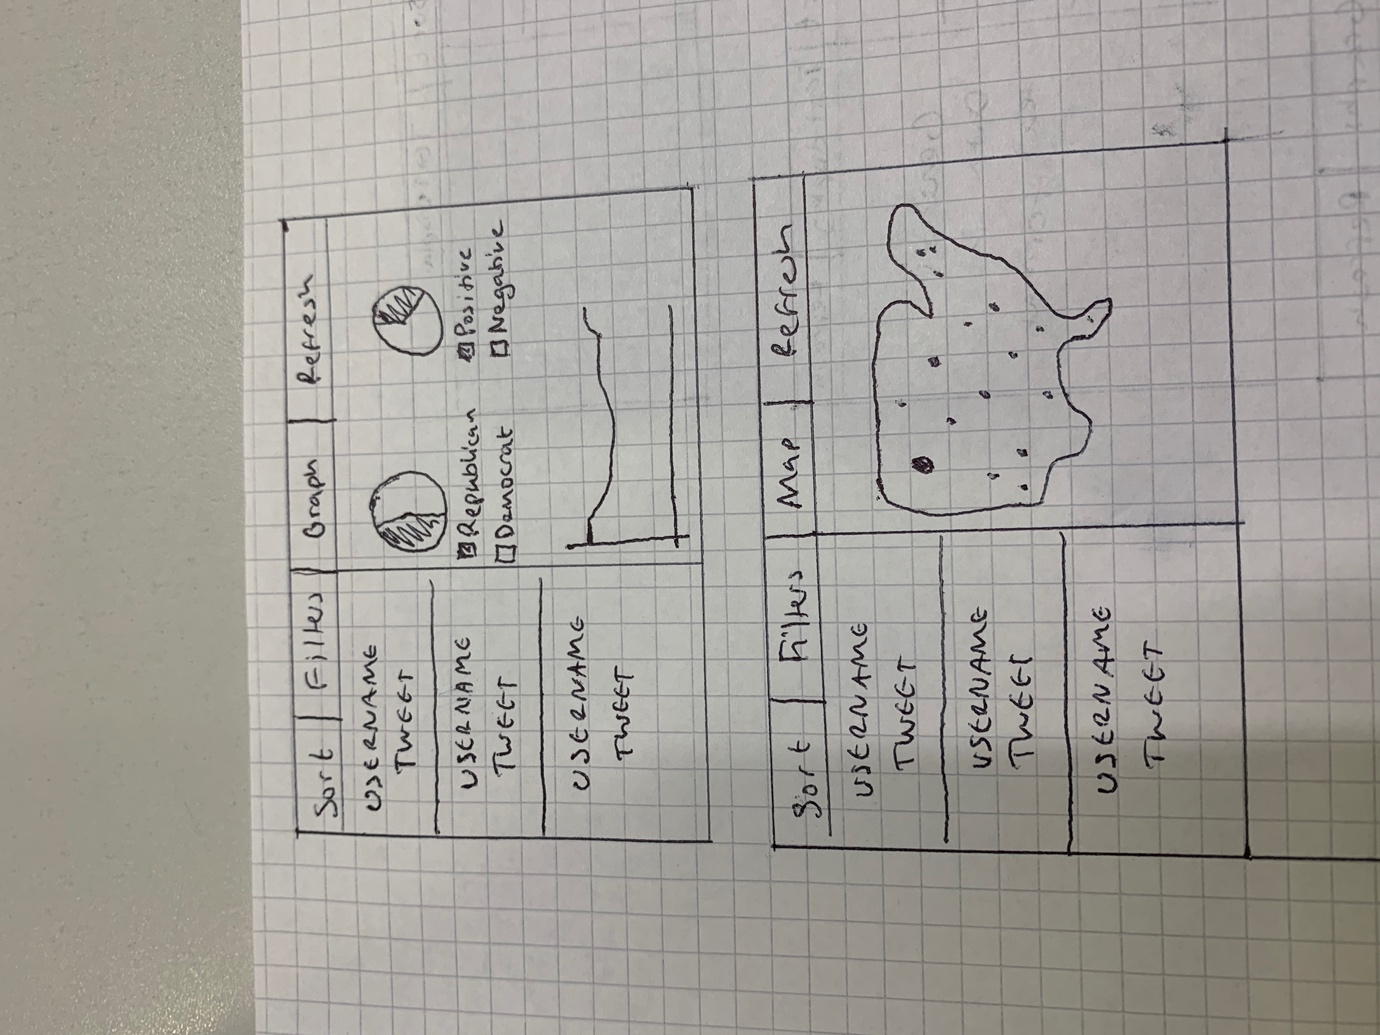 Sort | Filters | Graph | Refresh
USERNAME
TWEET
USERNAME
TWEET
USERNAME
TWEET
Republican
Democrat
Positive
Negative
Sort | Filters | Map | Refresh
USERNAME
TWEET
USERNAME
TWEET
USERNAME
TWEET